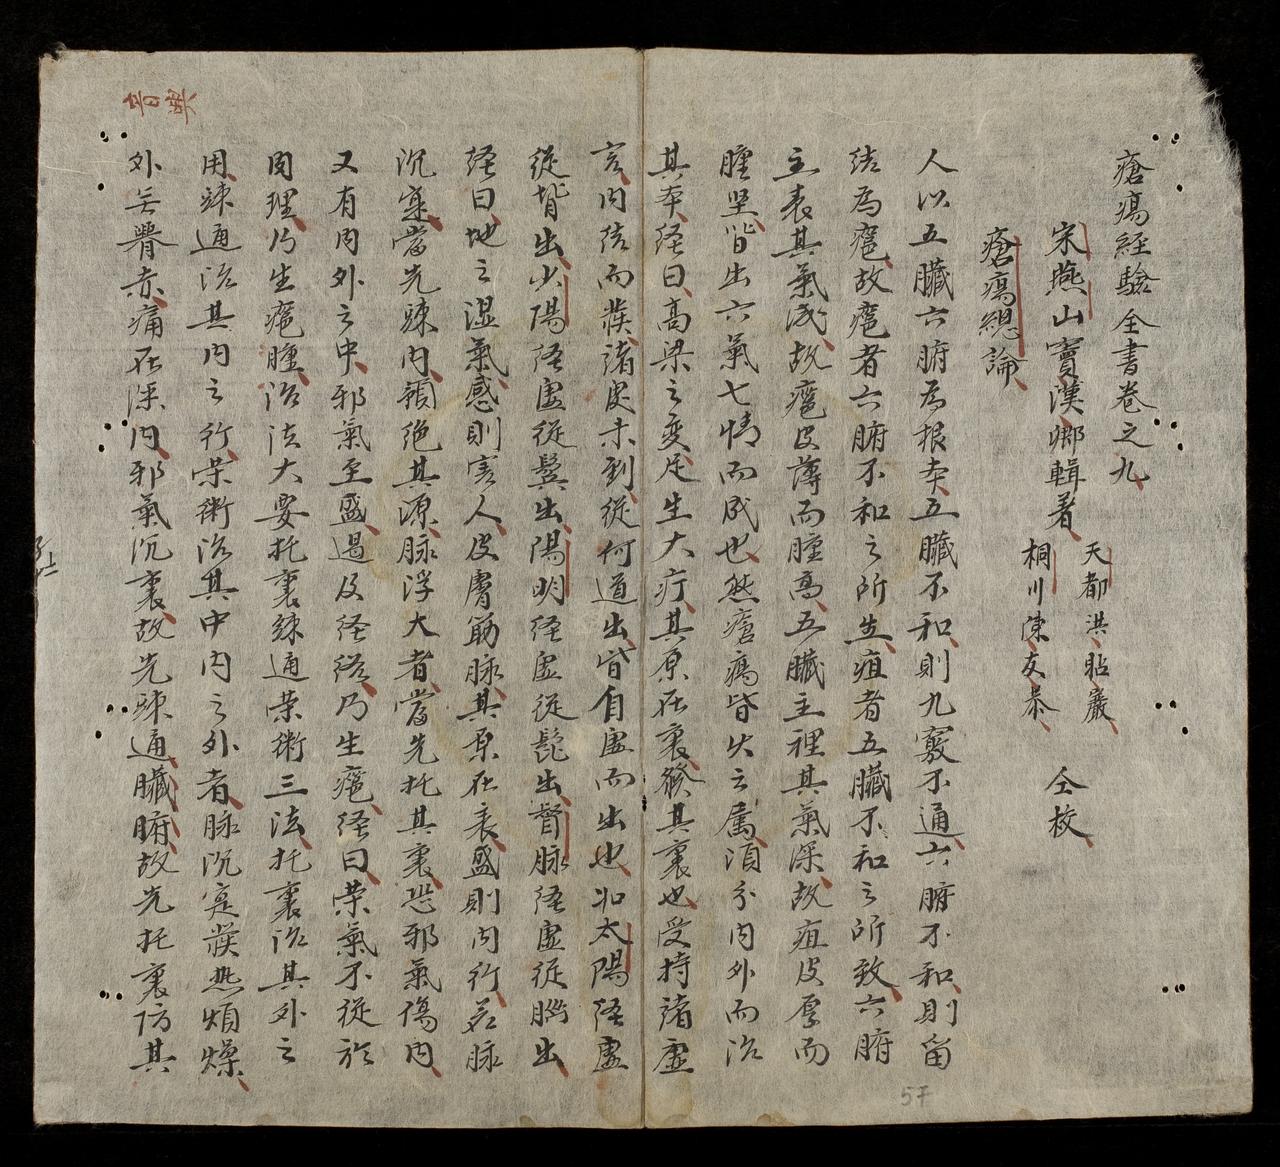 瘡瘍経驗全書卷之九
宋燕山竇漢卿輯著
天都洪瞻巖
桐川陳友恭
仝校
瘡瘍總論
人以五臟六腑為根本五臟不和則九竅不通六腑不和則留
结為癰故癰者六腑不和之所生疽者五臟不和之所致六腑
主表其氣浅故癰皮薄而腫高五臟主裡其氣深故疽皮厚而
腫坚皆出六氣七情而成也然瘡瘍皆火之属須分内外而治
其本経曰高梁之变足生大疔其原在裏發其裏也受持諸虚
言内结而發諸处未到從何道出皆自虚而出也如太陽経虚
從背出少陽経虚從鬓出陽明経虚從髭出督脉経虚從腦出
経曰地之湿氣感則害人皮膚筋脉其原在表盛則内行若脉
沉寔當先踈内預绝其源脉浮大者當先托其裏恐邪氣傷内
又有内外之中邪氣至盛過及経络乃生癰経曰荣氣不從於
肉理乃生癰腫治法大要托裏踈通荣衛三法托裏治其外之
用踈通治其内之行荣衛治其中内之外者脉沉寔發热煩燥
外无臖赤痛在深内邪氣沉裏故先踈通臟腑故先托裏防其
57